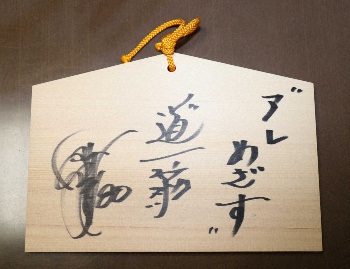 〃ダレ
めざす〃
道一筋